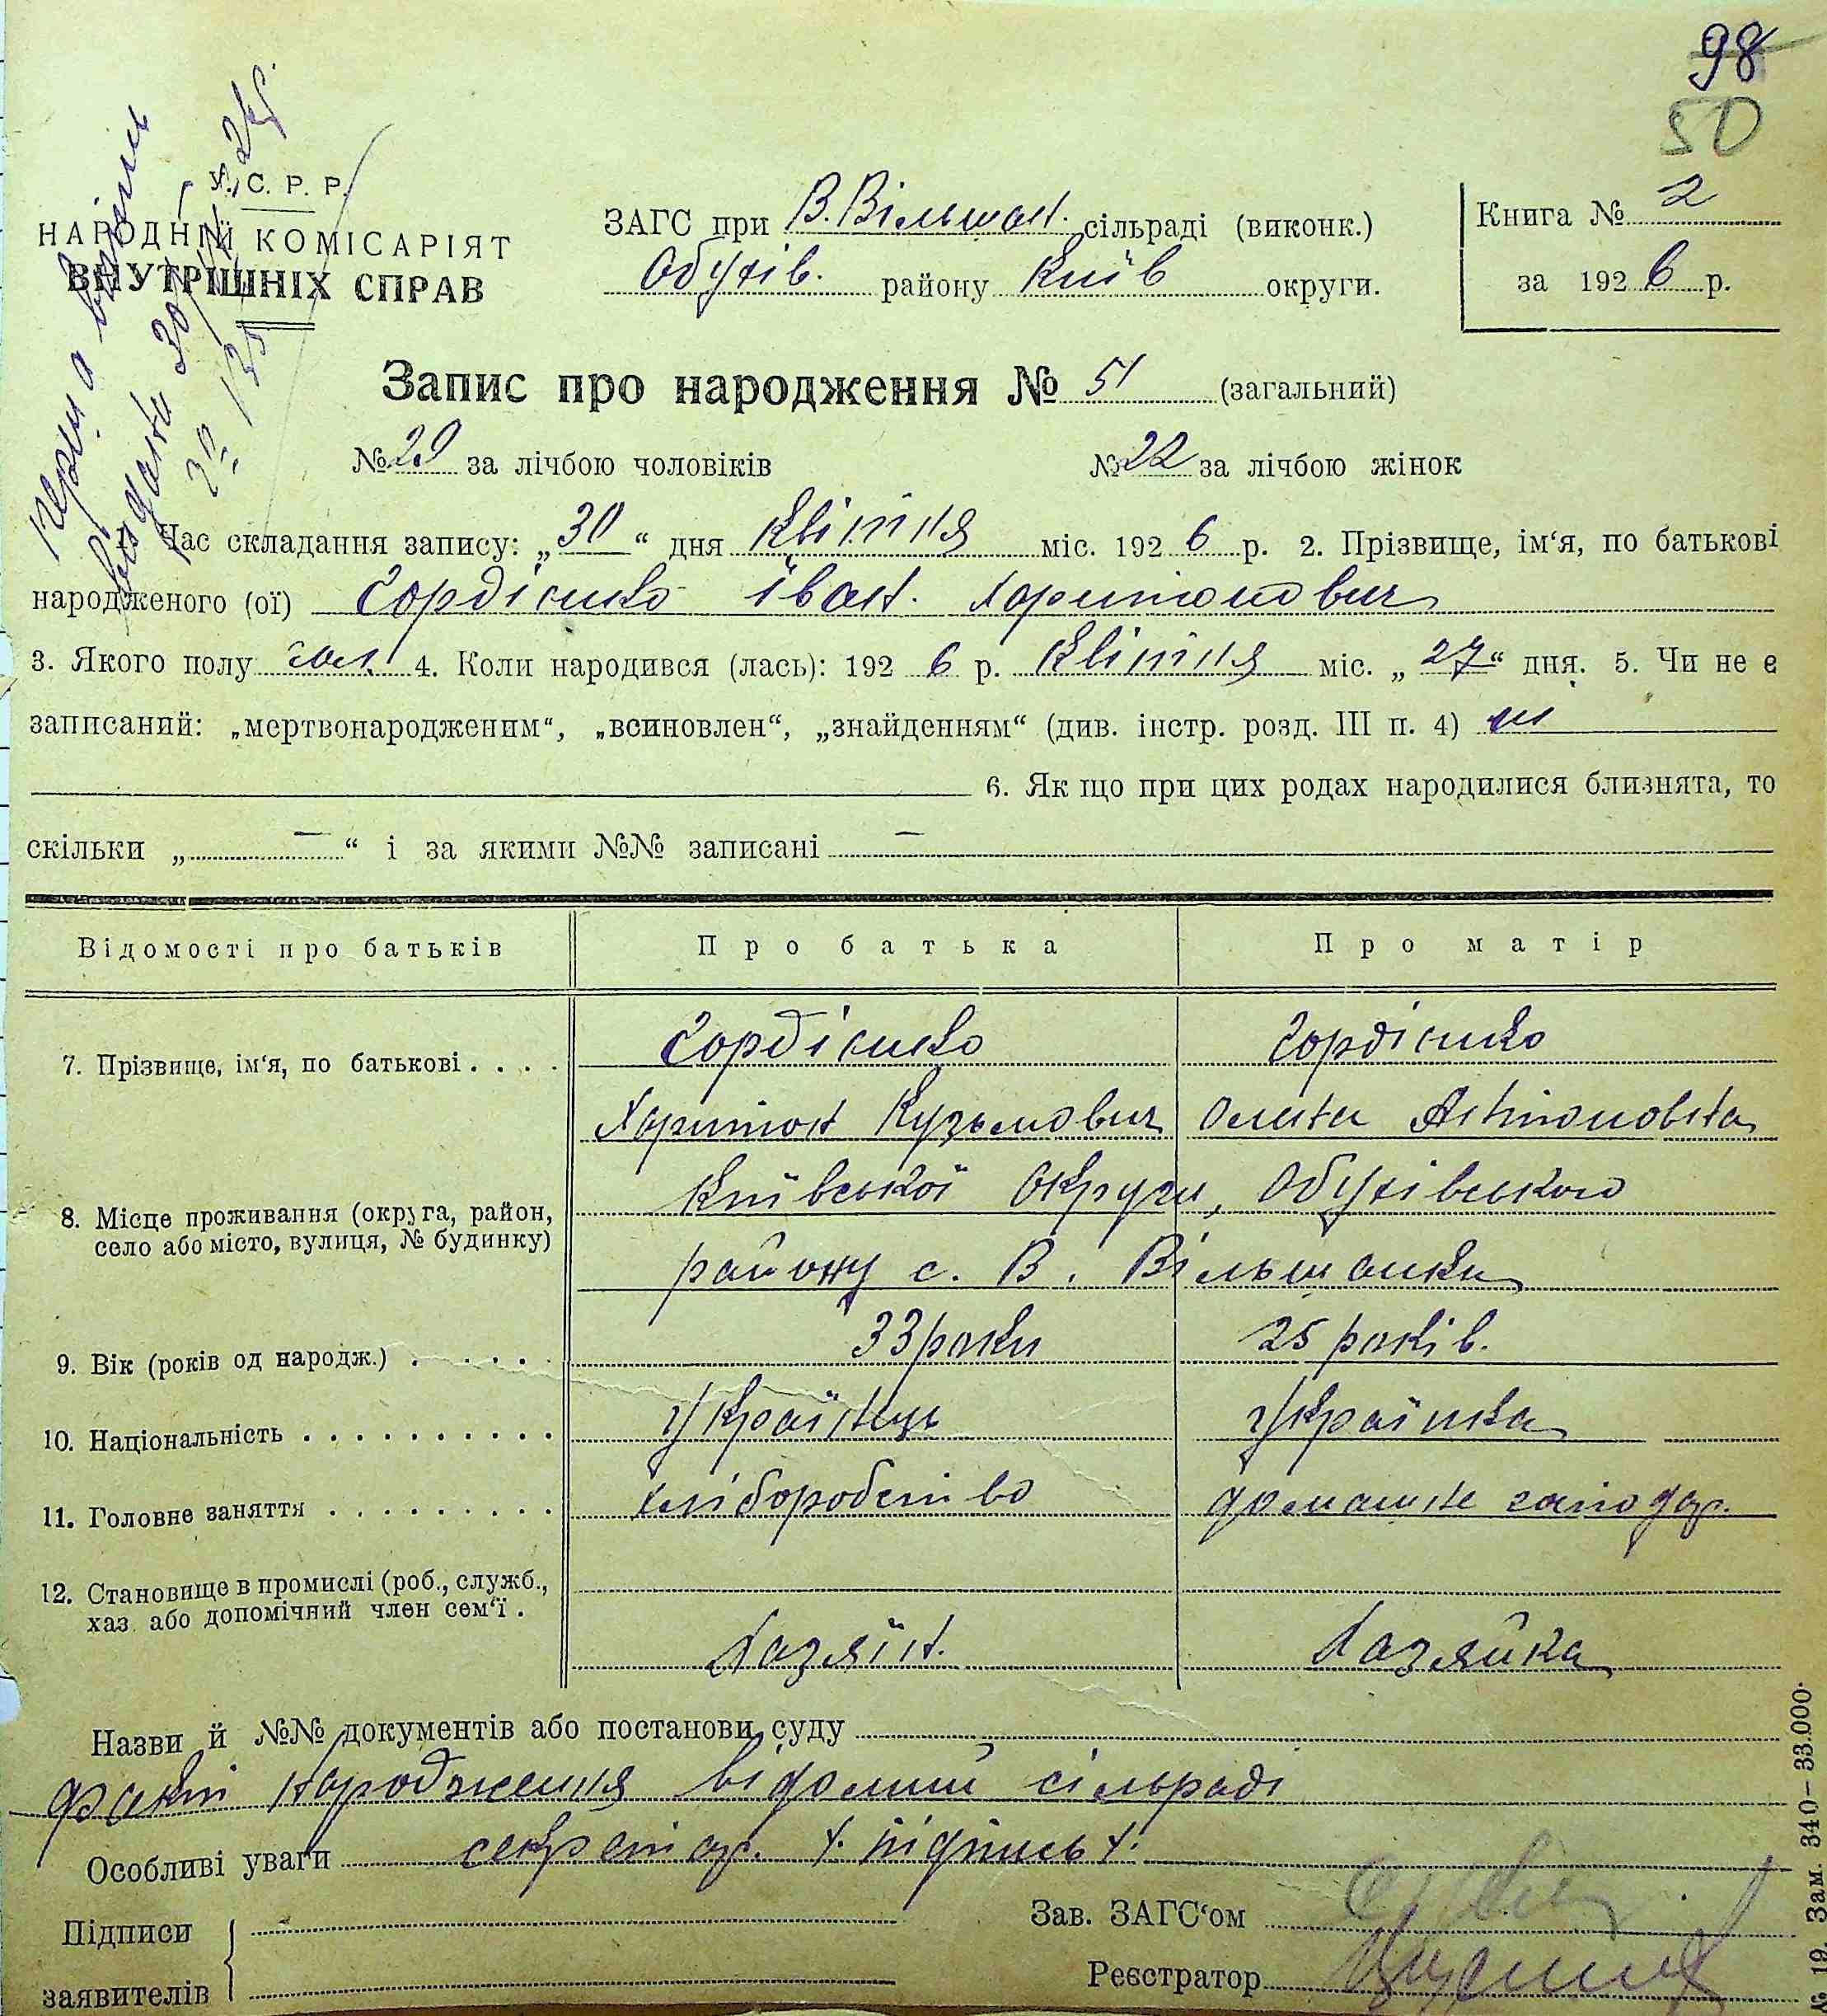 98
50
У. С. Р. Р.
НАРОДНІЙ КОМІСАРІЯТ
ВНУТРІШНІХ СПРАВ
ЗАГС при В. Вільшан. сільраді (виконк.)
Обухів. району Київ округи.
Книга № 2
за 1926 р.
Запис про народження № 51 (загальний)
№ 29 за лічбою чоловіків
№ 22 за лічбою жінок
1. Час складання запису: „30“ дня Квітня міс. 1926 р. 2. Прізвище, ім‘я, по батькові
народженого (ої) Гордієнко Іван. Харитонович
3. Якого полу чол. 4. Коли народився (лась): 1926 р. Квітня міс. „27“ дня. 5. Чи не є
записаний: „мертвонародженим“, „всиновлен“, „знайденням“ (див. інстр. розд. III п. 4) ні
6. Як що при цих родах народилися близнята, то
скільки „ — “ і за якими №№ записані —
Відомості про батьків Про батька Про матір
7. Прізвище, ім‘я, по батькові . . . . Гордієнко Гордієнко
Харитон Кузьмович Олена Антоновна
8. Місце проживання (округа, район, Київської Округи, Обухівського
село або місто, вулиця, № будинку) району с. В. Вільшанки
9. Вік (років од народж.) . . . . . 33 роки 25 років.
10. Національність . . . . . . . . . . Українець Українка
11. Головне заняття . . . . . . . . . Хліборобство домашнє господар.
12. Становище в промислі (роб., служб.,
хаз. або допомічний член сем‘ї . Хазяїн. Хазяйка
Назви й №№ документів або постанови суду
факт народження відомий сільраді
Особливі уваги секретар. /. підпись /.
Підписи
заявителів
Зав. ЗАГС‘ом
Реєстратор
19. Зам. 340—33.000.